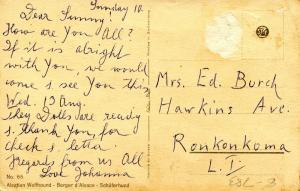 Sunday 10.
Dear Sunny!
How are You All?
If it is alright
with You, we would
come & see You this
Wed. 13 Aug.
they Dolls are ready
s. Thank you, for
check & letter.
Regards from us All
Love Johanna
No. 65
Alsatian Wolfhound - Berger d'Alsace - Schäferhund
Mrs. Ed. Burch
Hawkins Ave.
Ronkonkoma
L. I.